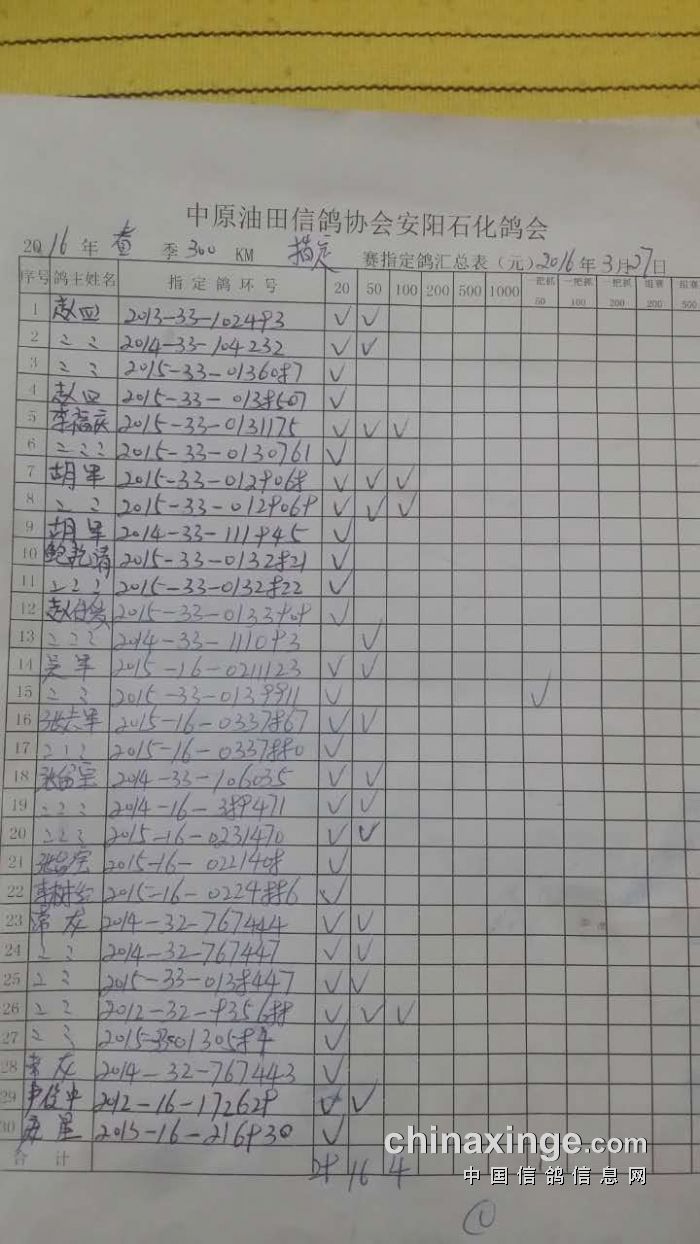 中原油田信鸽协会安阳石化鸽会
2016年 春 季 300 KM 指定 赛指定鸽汇总表（元）2016年3月27日
序号 鸽主姓名 指定鸽环号 20 50 100 200 500 1000 一把抓50 一把抓100 一把抓200 组赛200 组赛500
1 赵四 2013-33-102493 √ √
2 〃 〃 2014-33-104232 √ √
3 〃 〃 2015-33-0136087 √
4 赵四 2015-33-0138507 √
5 李福庆 2015-33-0131175 √ √ √
6 〃 〃 〃 2015-33-0130761 √
7 胡军 2015-33-0129068 √ √ √
8 〃 〃 2015-33-0129069 √ √ √
9 胡军 2014-33-111945 √
10 2015-33-0132821 √
11 〃 〃 〃 2015-33-0132822 √
12 2015-33-0133909 √
13 〃 〃 〃 2014-33-111093 √
14 吴军 2015-16-0211123 √ √
15 〃 〃 2015-33-0139911 √ √
16 张志军 2015-16-0337867 √ √
17 〃 〃 〃 2015-16-0337880 √
18 2014-33-106035 √ √
19 〃 〃 〃 2014-16-389471 √ √
20 〃 〃 〃 2015-16-0231470 √ √
21 2015-16-0221408 √
22 2015-16-0224886 √
23 常友 2014-32-767444 √ √
24 〃 〃 2014-32-767447 √ √
25 〃 〃 2015-33-0138447 √ √
26 〃 〃 2012-32-935688 √ √ √
27 〃 〃 √
28 常友 2014-32-767443 √
29 2012-16-172629 √ √
30 2015-16-216930 √
合计 29 16 4
chinaxinge.com
中国信鸽信息网
①